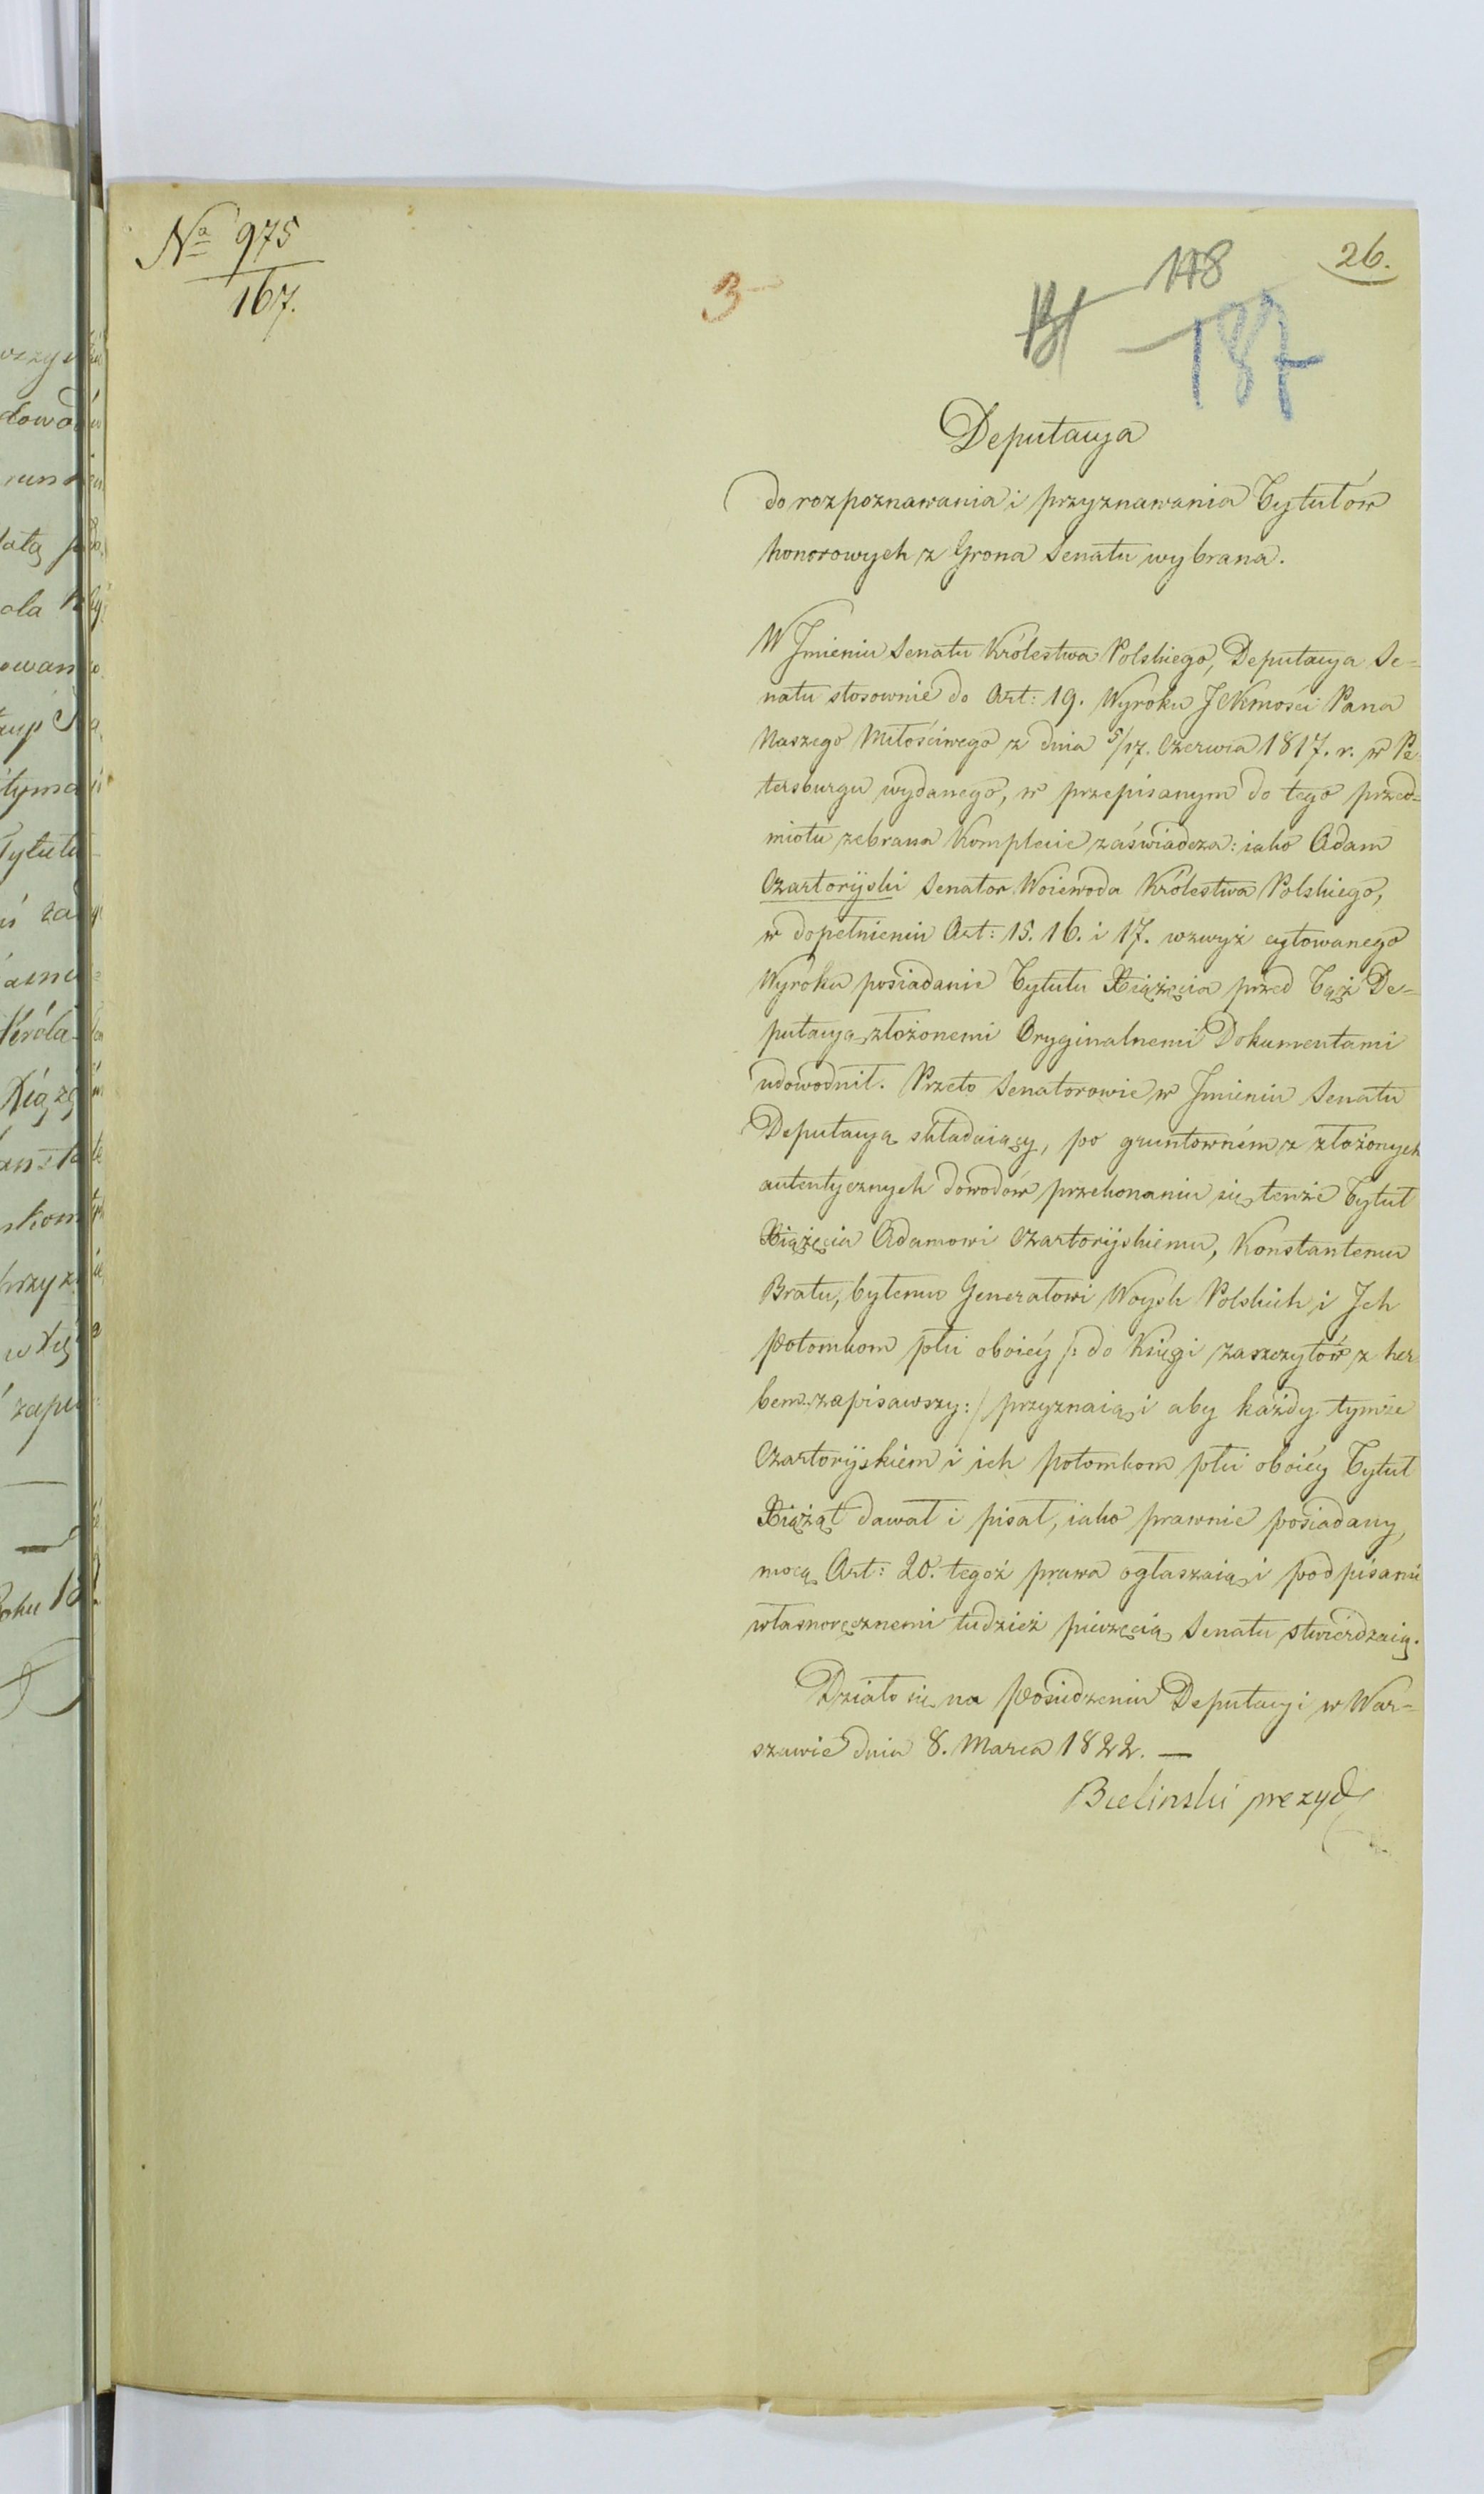 Na 975
167.
3
118
26.
187
Deputacya
do rozpoznawania i przyznawania Tytułów
honorowych z Grona Senatu wybrana.
W Jmieniu Senatu Królestwa Polskiego, Deputacya Se=
natu stosownie do Art: 19. Wyroku JKMości Pana
Naszego Miłościwego z dnia 5/17. Czerwca 1817. r. w Pe
tersburgu wydanego, w przepisanym do tego przed=
miotu zebrana Komplecie zaświadcza: iako Adam
Czartoryski Senator Woiewoda Królestwa Polskiego,
w dopełnieniu Art: 15. 16. i 17. wzwyż cytowanego
Wyroku posiadanie Tytułu Xiążęcia przed Tąż De=
putacyą złożonemi Oryginalnemi Dokumentami
udowodnił. Przeto Senatorowie w Jmieniu Senatu
Deputacyą składaiący, po gruntowném z złożonych
autentycznych dowodów przekonaniu się tenże Tytuł
Xiążęcia Adamowi Czartoryskiemu, Konstantemu
Bratu, byłemu Generałowi Woysk Polskich i Jch
Potomkom płci oboiéy /: do Księgi zaszczytów z her
bem zapisawszy:/ przyznaią i aby każdy tymże
Czartoryskiem i ich potomkom płci oboiéy Tytuł
Xiążąt dawał i pisał, iako prawnie posiadany,
mocą Art: 20. tegoż prawa ogłaszaią i podpisami
własnoręcznemi tudzież pieczęcią Senatu stwierdzaią.
Działo się na Posiedzeniu Deputacyi w War=
szawie dnia 8. Marca 1822. —
Bielinski prezyd